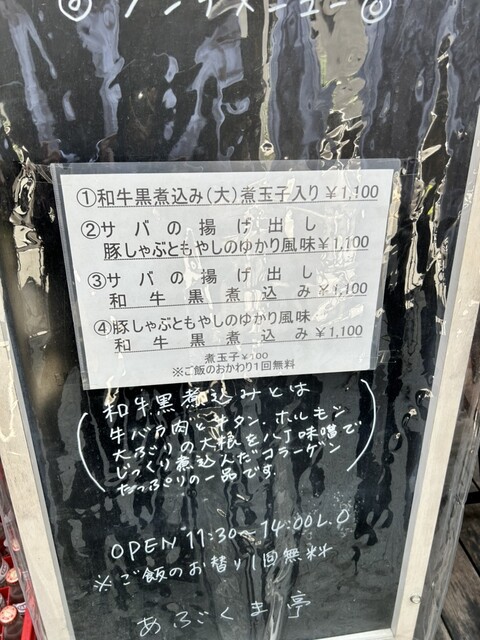 ◎ランチメニュー◎
①和牛黒煮込み(大)煮玉子入り¥1,100
②サバの揚げ出し
豚しゃぶともやしのゆかり風味¥1,100
③サバの揚げ出し
和牛黒煮込み¥1,100
④豚しゃぶともやしのゆかり風味
和牛黒煮込み¥1,100
煮玉子¥100
※ご飯のおかわり1回無料
和牛黒煮込みとは
牛バラ肉と牛タン、ホルモン
大ぶりの大根を八丁味噌で
じっくり煮込んだコラーゲン
たっぷりの一品です。
OPEN 11:30〜14:00L.O
※ご飯のお替り1回無料
あぶくま亭